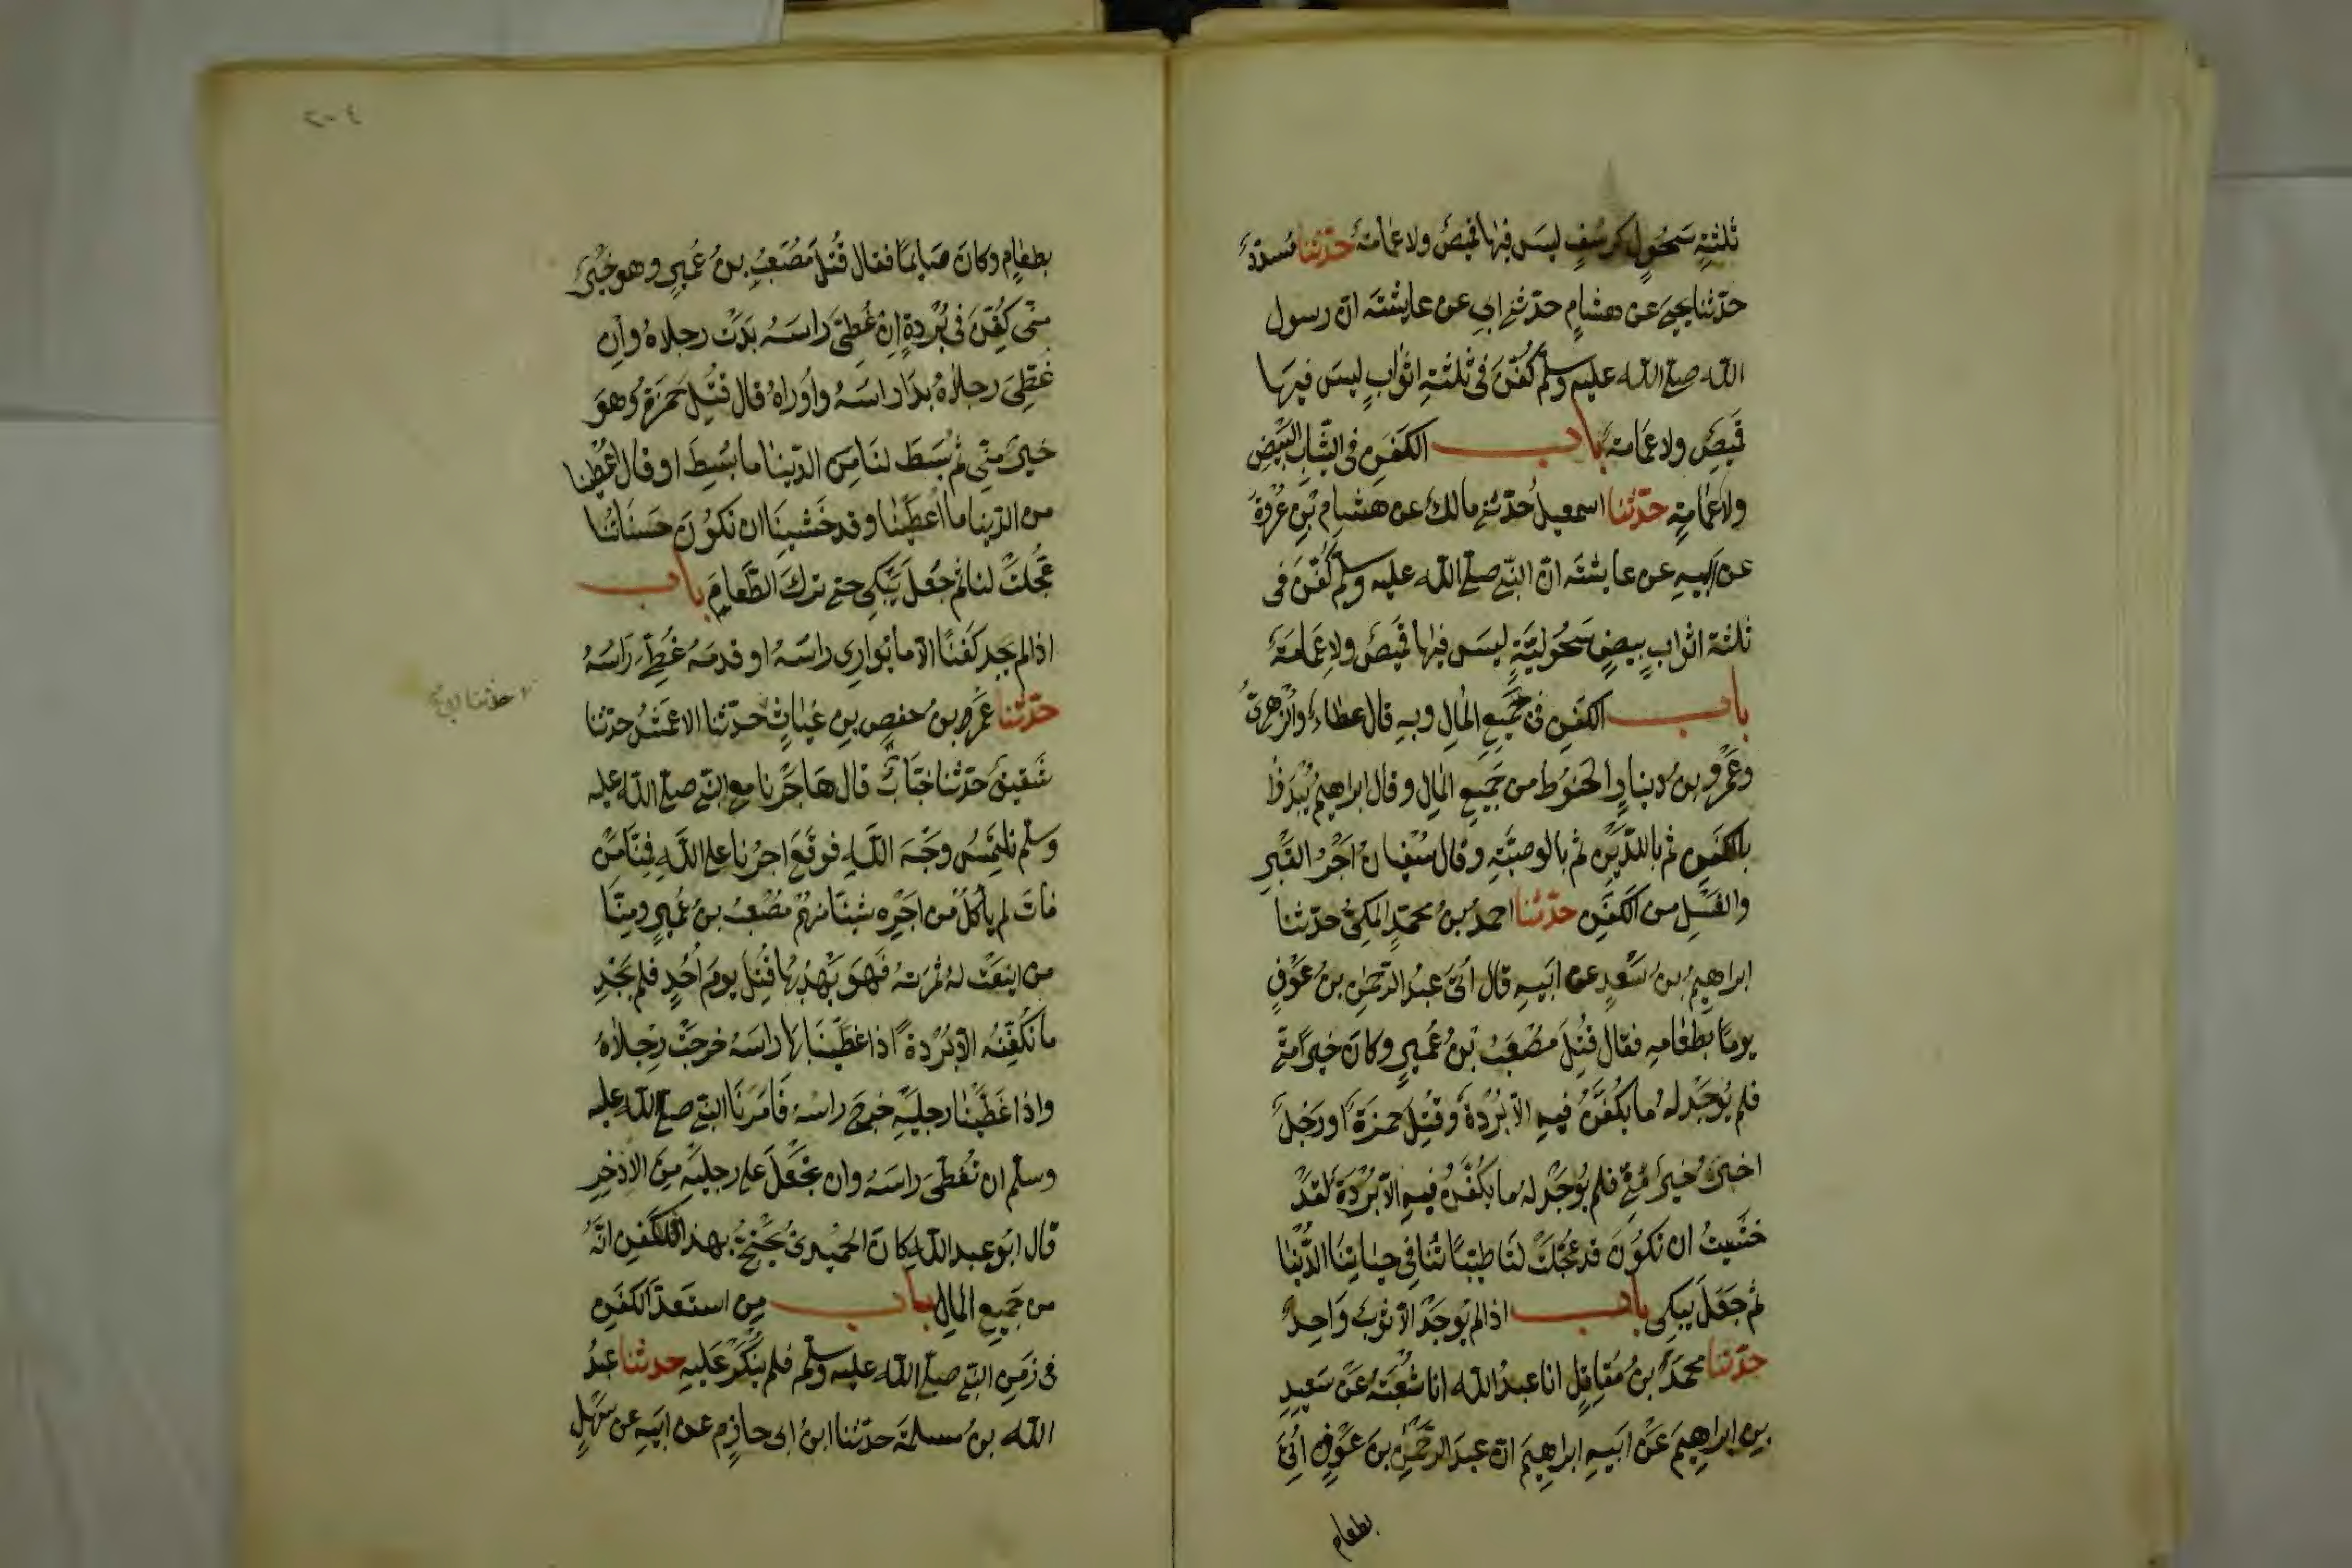 ثلثةِ سَحُولٍ كرسُفٍ ليسَ فيها قميصٌ ولا عمامةٌ حدّثنا مُسدّدٌ
حدّثنا يحيىَ عن هشامٍ حدّثنى ابي عن عايشَةَ انّ رسول
اللّه صلى اللّه عليه وسلّم كُفّنَ فى ثلثةِ اثوابٍ ليسَ فيها
قميصٌ ولا عمَامةٌ باب الكفَنِ فى الثيابِ البيضِ
ولا عمامةٍ حدّثنا اسمعيلُ حدّثنى مالك عن هشامِ بْنِ عُرْوَةَ
عن ابيهِ عن عايشَةَ انّ النبى صلى اللّه عليه وسلم كُفّنَ فى
ثلثةِ اثوابٍ بيضٍ سَحُوليّةٍ ليسَ فيها قميصٌ ولا عِمَامَةٌ
باب الكفَنِ من جَميعِ المالِ وبهِ قال عطاءٌ والزهرىُّ
وعَمْرو بنُ دينارٍ والحَنُوط من جَميعِ المالِ وقال ابراهيمُ يُبْدَؤُا
بالكفَنِ ثم بالدّيْنِ ثم بالوصيّةِ وقال سُفيانُ اَجْرُ القبْرِ
والغَسْلِ من الكفَنِ حدّثنا احمدُ بنُ محمّدٍ المكىُّ حدّثنا
ابراهيمُ بنُ سَعْدٍ عن ابيهِ قال اُتىَ عبدُ الرحمٰنِ بنُ عَوْفٍ
يومًا بطعَامهِ فقال قُتِلَ مُصْعَبُ بْنُ عُمَيرٍ وكانَ خيرًا منّى
فلم يُوجَدْ لهُ ما يكُفّنُ فيهِ الاّ بُرْدةٌ وقُتِلَ حمزَةُ او رَجُلٌ
اخرُ خيرٌ منّى فلم يُوجَدْ لهُ ما يكُفّنُ فيهِ الاّ بُرْدَةٌ لقدْ
خشيتُ ان تكونَ قد عُجّلتْ لنَا طيباتُنا فِي حياتِنَا الدّنْيا
ثم جَعَلَ يبكى باب اذا لم يُوجَدْ الاّ ثوبٌ وَاحِدٌ
حدّثنا محمّدُ بنُ مُقاتِلٍ انا عبدُ اللّه انا شُعْبَةُ عَنْ سَعِيدِ
بنِ ابراهيمَ عَنْ ابيهِ ابراهِيمَ انّ عبدَ الرحمٰنِ بنَ عَوْفٍ اُتىَ
بطعام
٢٠٤
بطعامٍ وكانَ صَايمًا فقال قُتلَ مُصْعَبُ بنُ عُميرٍ وهو خيرٌ
منّى كُفّنَ فى بُرْدةٍ اِنْ غُطىَّ راسَهُ بدَتْ رجلاهُ واِن
غطّىَ رجلاهُ بدَا راسَهُ واُراهُ قال قُتِلَ حمزَةُ وهوَ
خيرٌ منّى ثم بُسِطَ لنَا مِن الدّنيا ما بُسِطَ او قال اُعْطينا
من الدّنيا ما اُعطينا وقد خَشينَا ان تكونَ حسَناتُنا
عُجّلتْ لنا ثم جَعَلَ يَبْكِى حتى تركَ الطّعامَ باب
اذا لم يجِد كَفنًا الاّ ما يُوارِى راسَهُ او قدمَهُ غُطّىَ راسَهُ
حدّثنا عُمرُ بنُ حفصِ بنِ غياثٍ حدّثنا الاعمشُ حدّثنا
حدّثنا ابى
شقيقٌ حدّثنا خبّابٌ قال هَاجَرْنا مع النبى صلى اللّه عليه
وسلّم نلتَمِسُ وجْهَ اللّهِ فوقَعَ اجرُنا على اللّهِ فمِنّا مَنْ
ماتَ لم يأكلْ من اجرِهِ شيئًا منهم مُصْعَبُ بنُ عُميرٍ ومِنّا
من اينَعَتْ لهُ ثمرَتُهُ فَهوَ يَهْدِبُها قُتِلَ يومَ اُحُدٍ فلم نَجِدْ
ما نُكفّنُهُ الاّ بُرْدةً اذا غطّيْنَا بها راسَهُ خرجَتْ رِجْلاهُ
واذا غَطّيْنا رجليَهِ خرجَ راسُهُ فاَمَرَنَا النبى صلى اللّه عليه
وسلّم ان نُغطّىَ راسَهُ وان نَجْعَلَ على رجليَهِ مِنَ الاِذْخِرِ
قال ابو عبد اللّهِ كانَ الحُمَيْدىُّ يحتجّ بهذا فى الكَفنِ انّهُ
من جَميعِ المالِ باب مِن استعَدّ الكَفنَ
فى زَمنِ النبى صلى اللّه عليه وسلّم فلم يُنْكَرْ عَليهِ حدثنا عبدُ
اللّه بنُ مسلمَةَ حدّثنا ابنُ ابى حازِمٍ عن ابيهِ عن سَهْلٍ